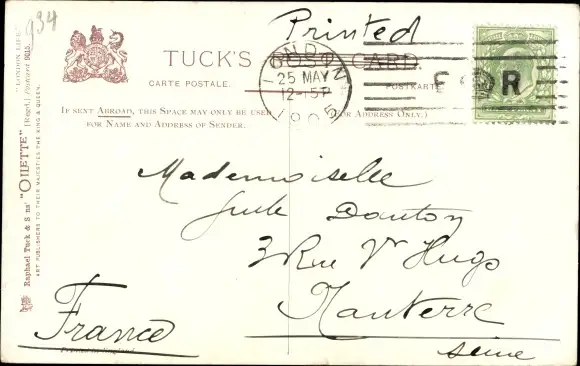 Printed
TUCK'S POST CARD
CARTE POSTALE. POSTKARTE.
IF SENT ABROAD, THIS SPACE MAY ONLY BE USED
FOR NAME AND ADDRESS OF SENDER.
(FOR ADDRESS ONLY.)
LONDON
25 MAY
12-15P
R
Mademoiselle
Danton
3 Rue Vr Hugo
Nanterre
Seine
France
Printed in England.
934
"LONDON LIFE"
Raphael Tuck & Sons' "OILETTE" [Regd.] Postcard 9015.
ART PUBLISHERS TO THEIR MAJESTIES THE KING & QUEEN.